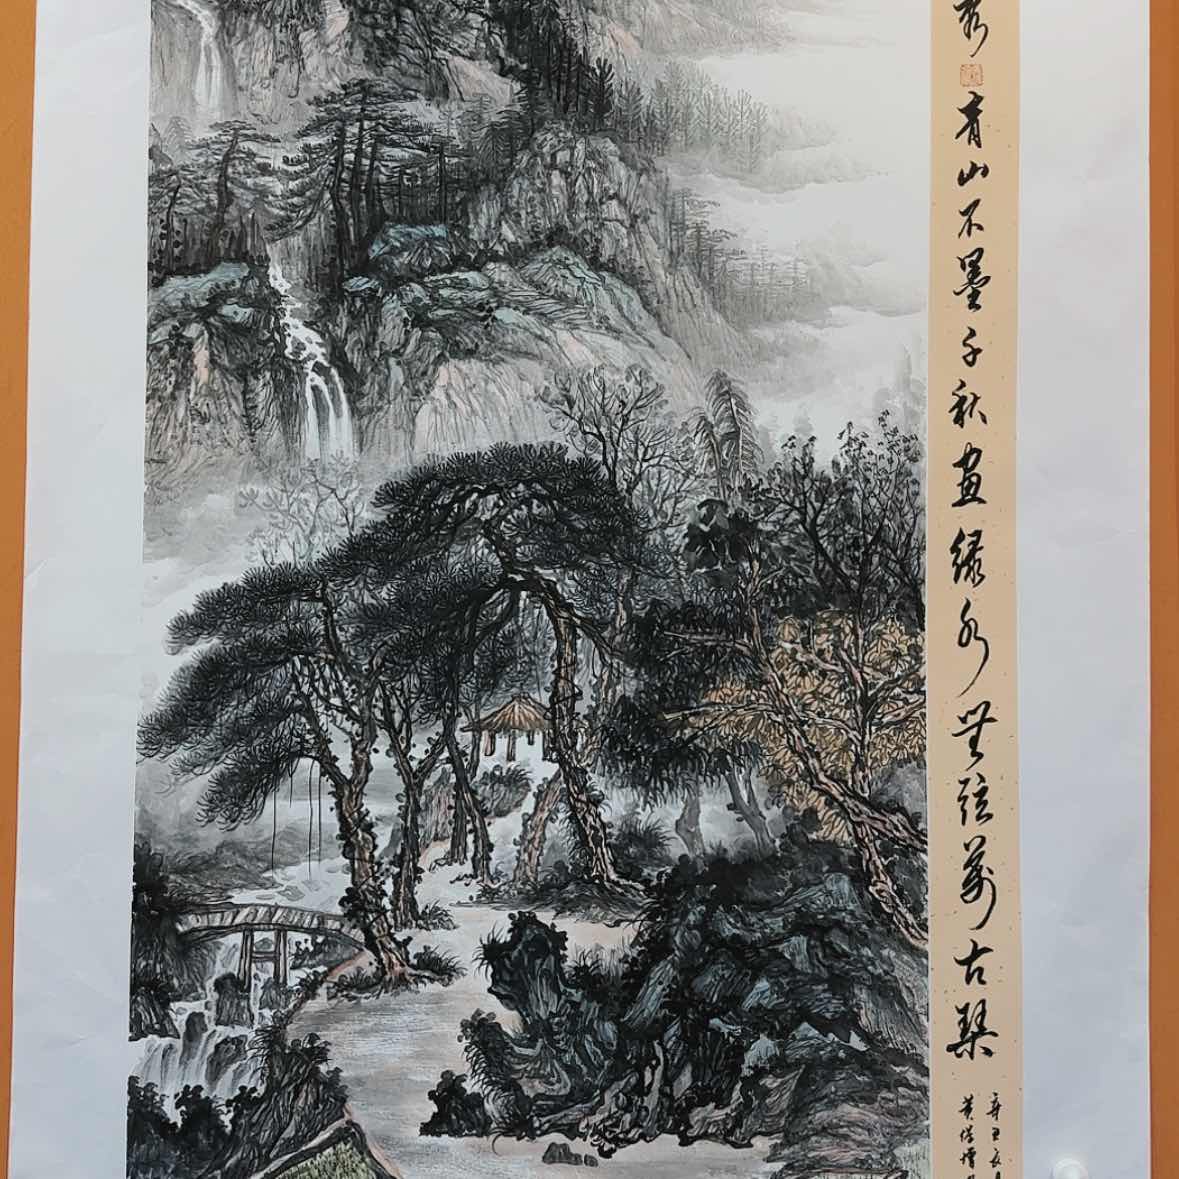 青山不墨千秋画绿水無弦萬古琴
辛丑
黄